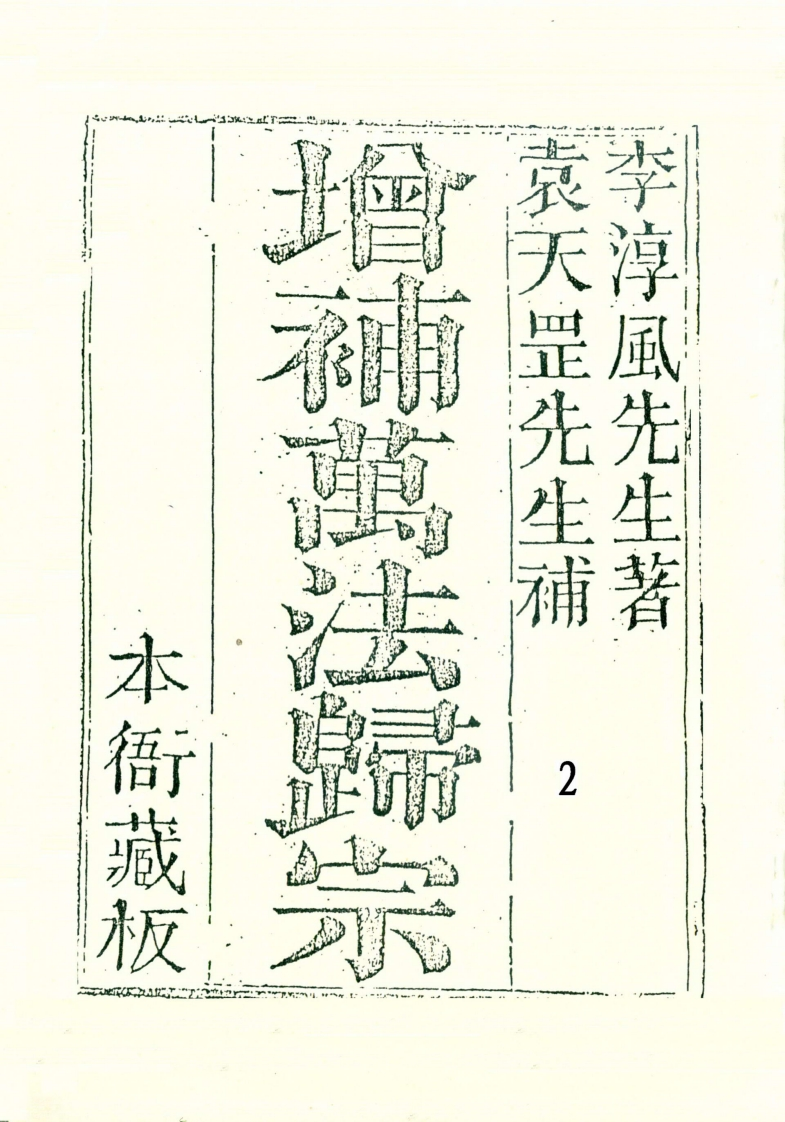 李淳風先生著
袁天罡先生補
增補萬法歸宗
本衙藏板
2